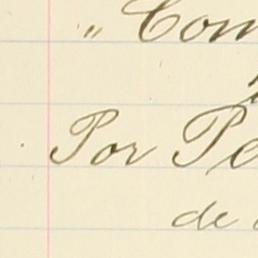 „ Com
Por Pe
de